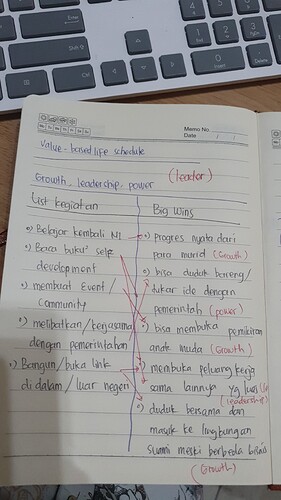 Memo No.
Date / /
Mo Tu We Th Fr Sa Su
Value - based life schedule
Growth - leadership - power
(leader)
List kegiatan
Big wins
o) Belajar kembali N1
o) Baca buku² self
development
o) membuat Event /
Community
o) melibatkan / berjasama
dengan pemerintahan
o) Bangun / buka link
di dalam / luar negeri
o) progres nyata dari
para murid (Growth)
o) bisa duduk bareng /
tukar ide dengan
pemerintah (power)
o) bisa membuka pemikiran
anak muda (Growth)
o) membuka peluang kerja
sama lainnya yg luas
(leadership)
o) duduk bersama dan
masuk ke lingkungan
suami meski berbeda bisnis
(Growth)
Enter
Shift
Ctrl
End
0
Insert
Delete